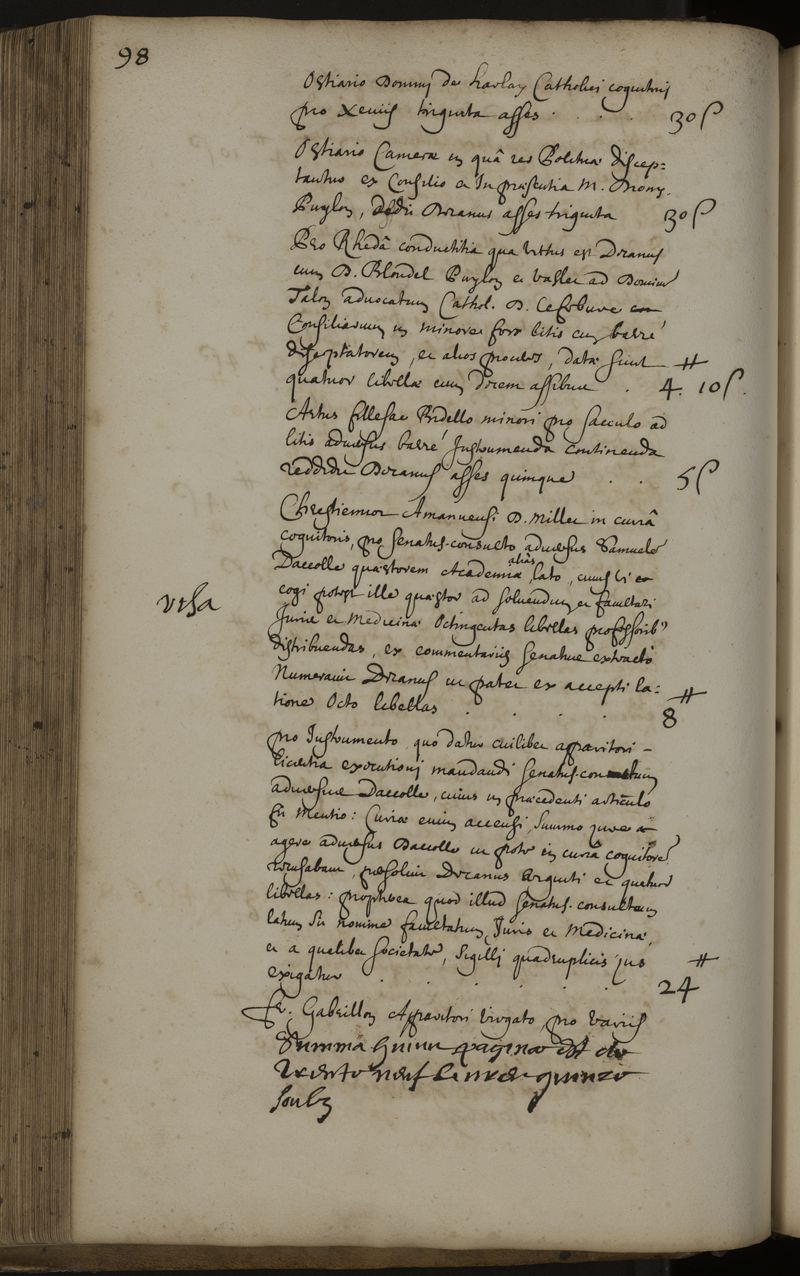 98
Ostiario Domini de harlay Catholici cognitoris
pro Xeniis triginta asses . . . . 30 s
Ostiario Camerae in quâ res Politicae discep=
tantur ex Consilio et In praesentia M. Diony.
Puylon, dedit Decanus asses triginta 30 s
Pro Rhedâ conductitia qua vectus est Decanus
cum D. Blondel Puylon et vaslet ad Dominum
Talon advocatum Cathol. D. Lefebure
Consiliarium in minore foro litis cum barré
disceptatorem, et alios proceres, datae sunt
quatuor libellae cum decem assibus . 4 ⁜. 10 s.
Artus fillesac Bidello minori pro sacculo ad
litis adversus barré Instrumenda continenda
reddidit Decanus asses quinque . . 5 s
Chrestiennor Amanuensi D. Miller in curiâ
cognitoris, pro senatus-consulto adversus Samuele
Dacolle quaestorem Academiae aliâs lato, cuius vi
visa
cogi potest ille quaestor ad solvendum et facultati
Juris et Medicinae Octingentas libellas professorib9
distribuendas, ex commentariis senatus extracto
Numeravit Decanus ut patet ex accepti la=
tione Octo libellas . . . . 8 ⁜
pro Instrumento quo datur cuilibet apparitori
licentia executioni mandandi senatus-consultum
adversus Dacolle, cuius in praecedenti articulo
fit mentio: Curiae enim accensi, summo jure
agere adversus Dacolle ut pote in curiâ cognitore
recusabant, persolvit Decanus viginti et quatuor
libellas: propterea quod illud senatus-consultum
latum sit nomine facultatum Juris et Medicinae,
et a qualibet societate, sigilli quadruplicis jus
exigatur . . . . . . 24 ⁜
Gabrillon Apparitori virgato pro variis
Summa huius paginae est de
trente neuf livres quinze
soulz